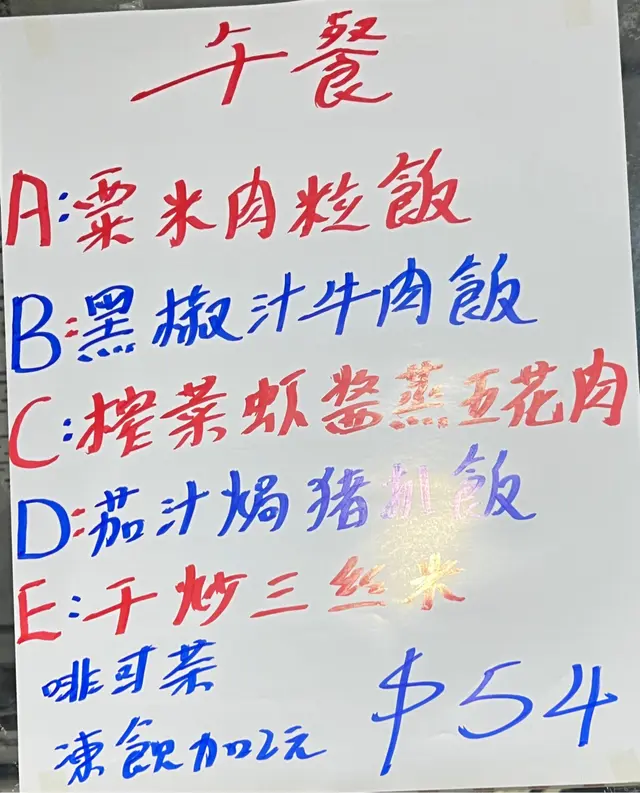 午餐
A:粟米肉粒飯
B:黑椒汁牛肉飯
C:榨菜虾醬蒸五花肉
D:茄汁焗猪扒飯
E:干炒三丝米
啡可茶
凍飲加2元
$54